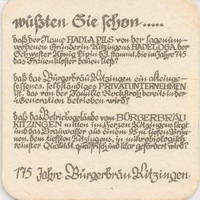 wüßten Sie schon.....
daß der Name HADLA PILS von der sagenum-
wobenen Gründerin Kitzingens HADELOGA der
Schwester König Pipin d.J. stammt, die im Jahre 745
das Frauenkloster bauen ließ?
daß das Bürgerbräu Kitzingen ein alleinge-
sessenes, selbständiges PRIVATUNTERNEHMEN
ist, das von der Familie Reckhofs bereits in der
4. Generation betrieben wird?
daß das Betriebsgelände vom BÜRGERBRÄU
KITZINGEN mitten im Herzen Kitzingens liegt
und das Brauwasser aus einem 95 m tiefen Brun-
nen, dem tiefsten Kitzingens, in mikrobiologisch
reinster Qualität, quellfrisch und klar gefördert wird?
175 Jahre Bürgerbräu Kitzingen